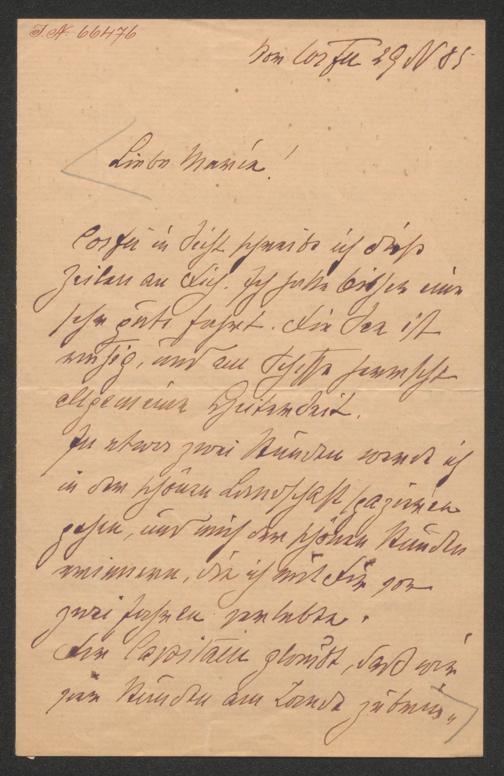 I.N. 66476
Von Corfu 29 N 85
Liebe Marie!
Corfu in Sicht schreibe ich diese
Zeilen an Dich. Ich hatte bisher eine
sehr gute Fahrt. Die See ist
ruhig, und am Schiffe herrscht
allgemeine Heiterkeit.
In etwa zwei Stunden werde ich
in der schönen Landschaft spazieren
gehen, und mich der schönen Stunden
erinnern, die ich mit Dir vor
zwei Jahren verlebte.
Der Capitain glaubt, daß wir
vier Stunden am Lande zubrin„